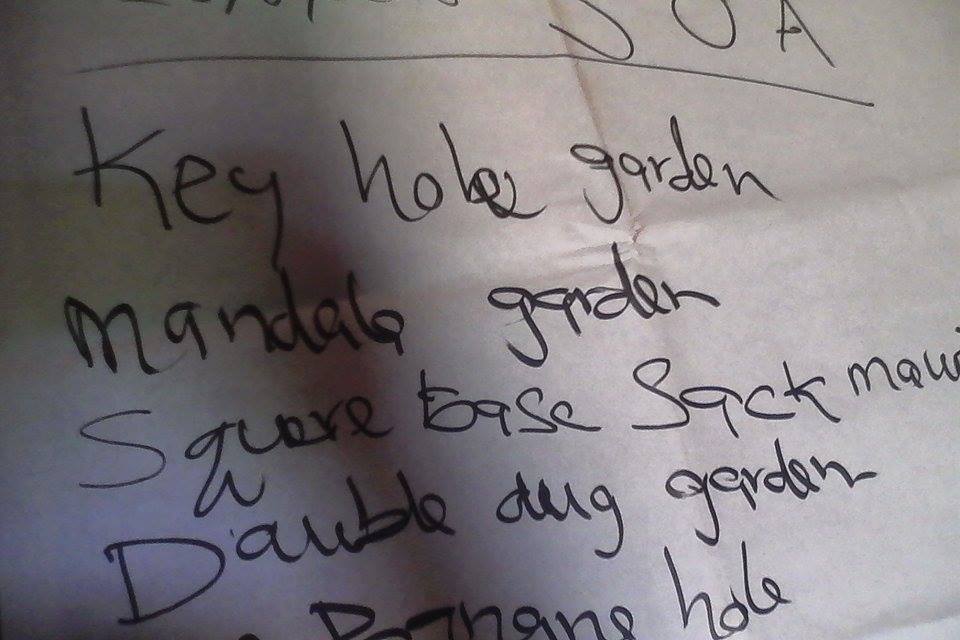 SOA
Key hole garden
Mandala garden
Square base Sack mawi
Dauble dug garden
Banana hole